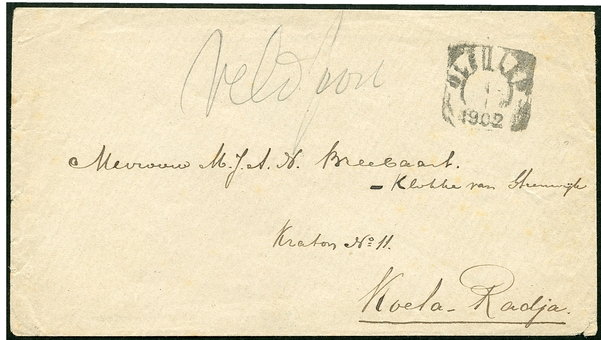 veldpost
OLEHLEH
1902
Mevrouw M. J. A. N. Breebaart.
- Klokke van Steenwijk
Kraton No 11.
Koeta-Radja.